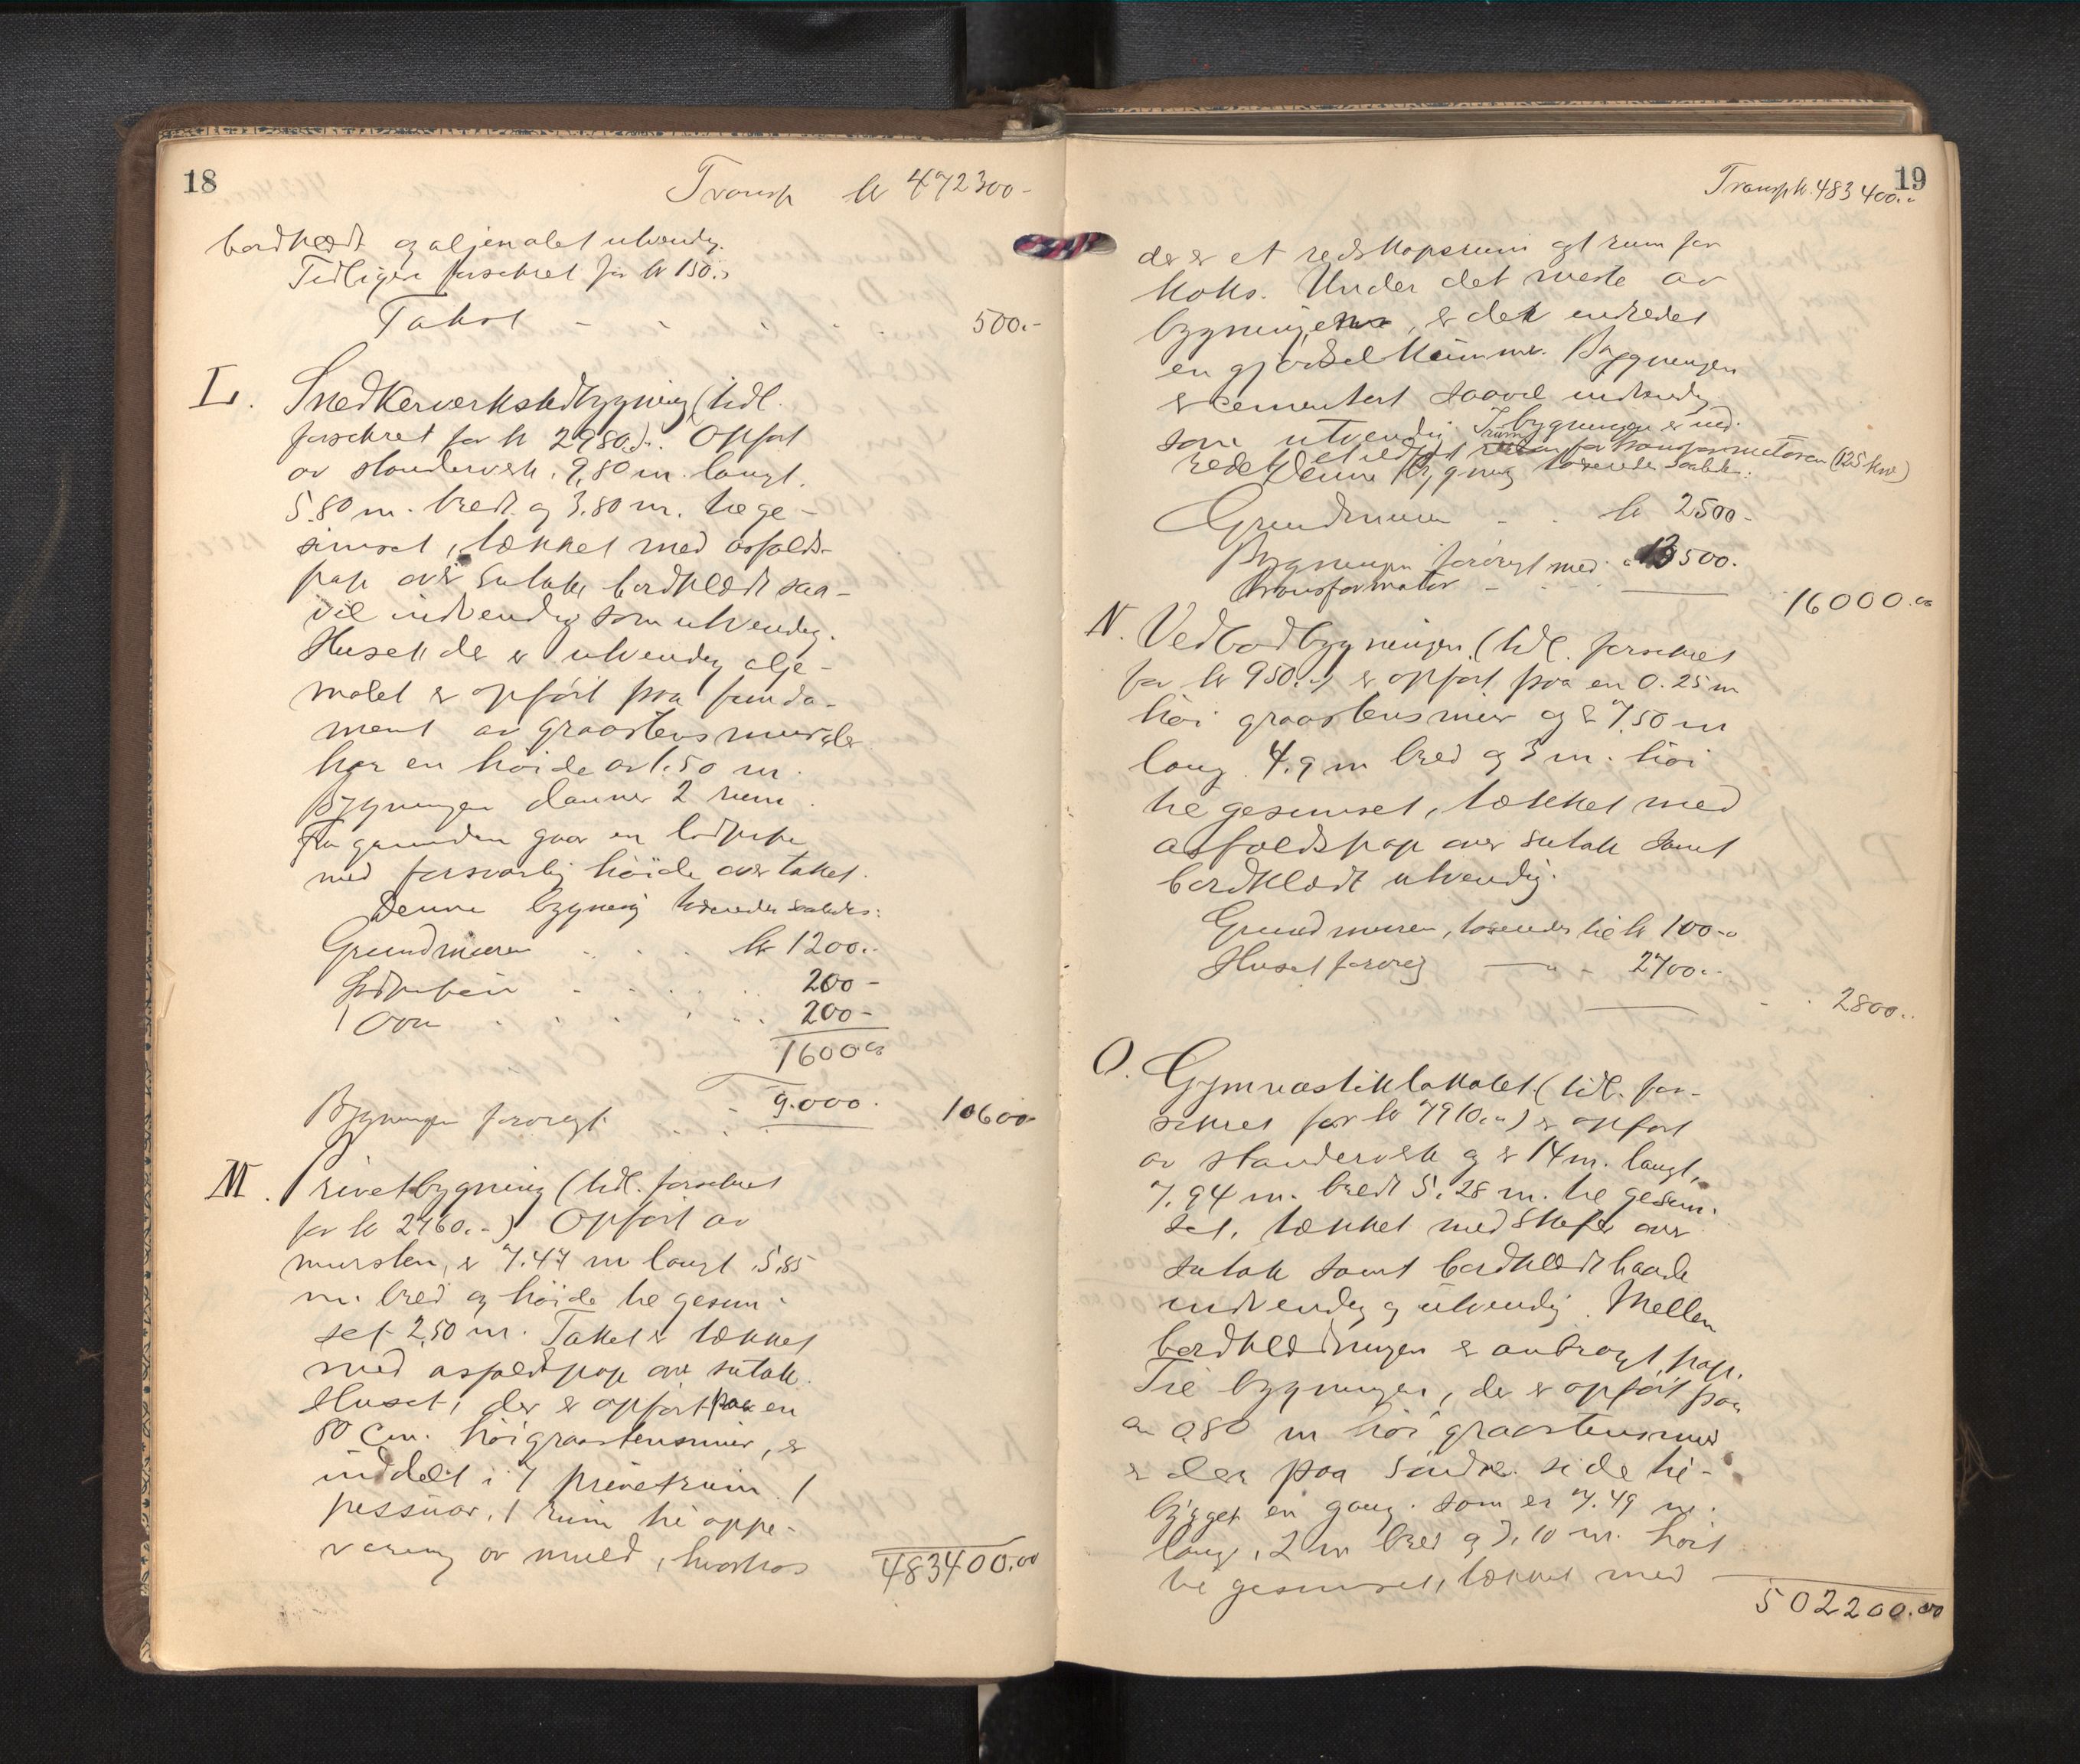 18
Transp kr 472300-
bordklædt og oljemalet utvendig.
Tidligere forsikret for kr 150.-
Takst - - 500.-
L. Snedkerverkstedbygning (tidl.
forsikret for kr 2980.-). Opført
av standerverk, 9,80 m. langt,
5.80 m. bredt og 3.80 m. te ge-
simset, tækket med asfalds-
pap over sutak, bordklædt saa-
vel indvendig som utvendig.
Huset der er utvendig olje-
malet er opført paa funda-
ment av graastensmur der
har en høide av 1.50 m.
Bygningen danner 2 rum.
Fra grunden gaar en lodpipe
med forsvarlig høide over taket.
Denne bygning taxeredes saaledes:
Grundmuren . . . kr 1200.-
Lodpipen . . . 200-
1 Ovn . . . 200-
1600.00
Bygningen forøvrigt - 9.000. 10600-
M. Privetbygning (tidl. forsikret
for kr 2460.-) Opført av
mursten, er 7.47 m langt 5,85
m. bred og høide te gesim-
set 2,50 m. Taket er tækket
med asfaldtpap over sutak.
Huset, der er opført paa en
80 cm. høi graastensmur, er
inddelt i 7 privetrum, 1
pessoar, 1 rum te oppe-
varing av muld, hvorhos
483400.00
19
Transp kr. 483400.-
der er et redskapsrum og 1 rum for
koks. Under det meste av
bygningen, er der indredet
en gjødselkummer. Bygningen
er cementert saavel indvendig
som utvendig. I bygningen er ind-
redet et rum for transformatoren (125 kw)
Denne bygning taxeredes saaledes:
Grundmuren - . kr 2500-
Bygningen forøvrigt med " 13500.
transformator - - 16000.00
N. Vedbodbygningen (tidl. forsikret
for kr 950.-) er opført paa en 0.25 m
høi graastensmur og er 7,50 m
lang 4.9 m bred og 3 m. høi
te gesimset, tækket med
asfaldspap over sutak samt
bordklædt utvendig.
Grundmuren, taxeredes til kr 100.-
Huset forøvrig — " - 2700.-
- . 2800.-
O. Gymnastiklokalet (tidl. for-
sikret for kr 7910.-) er opført
av standerverk og er 14 m. langt,
7.94 m. bredt 5,28 m. te gesim-
set, tækket med skifer over
sutak samt bordklædt baade
indvendig og utvendig. Mellem
bordklædningen er anbragt pap.
Til bygningen, der er opført paa
en 0,80 m høi graastensmur
er der paa søndre side til-
bygget en gang, som er 7.49 m.
lang, 2 m bred og 3,10 m. høit
te gesimset, tækket med
502200.00